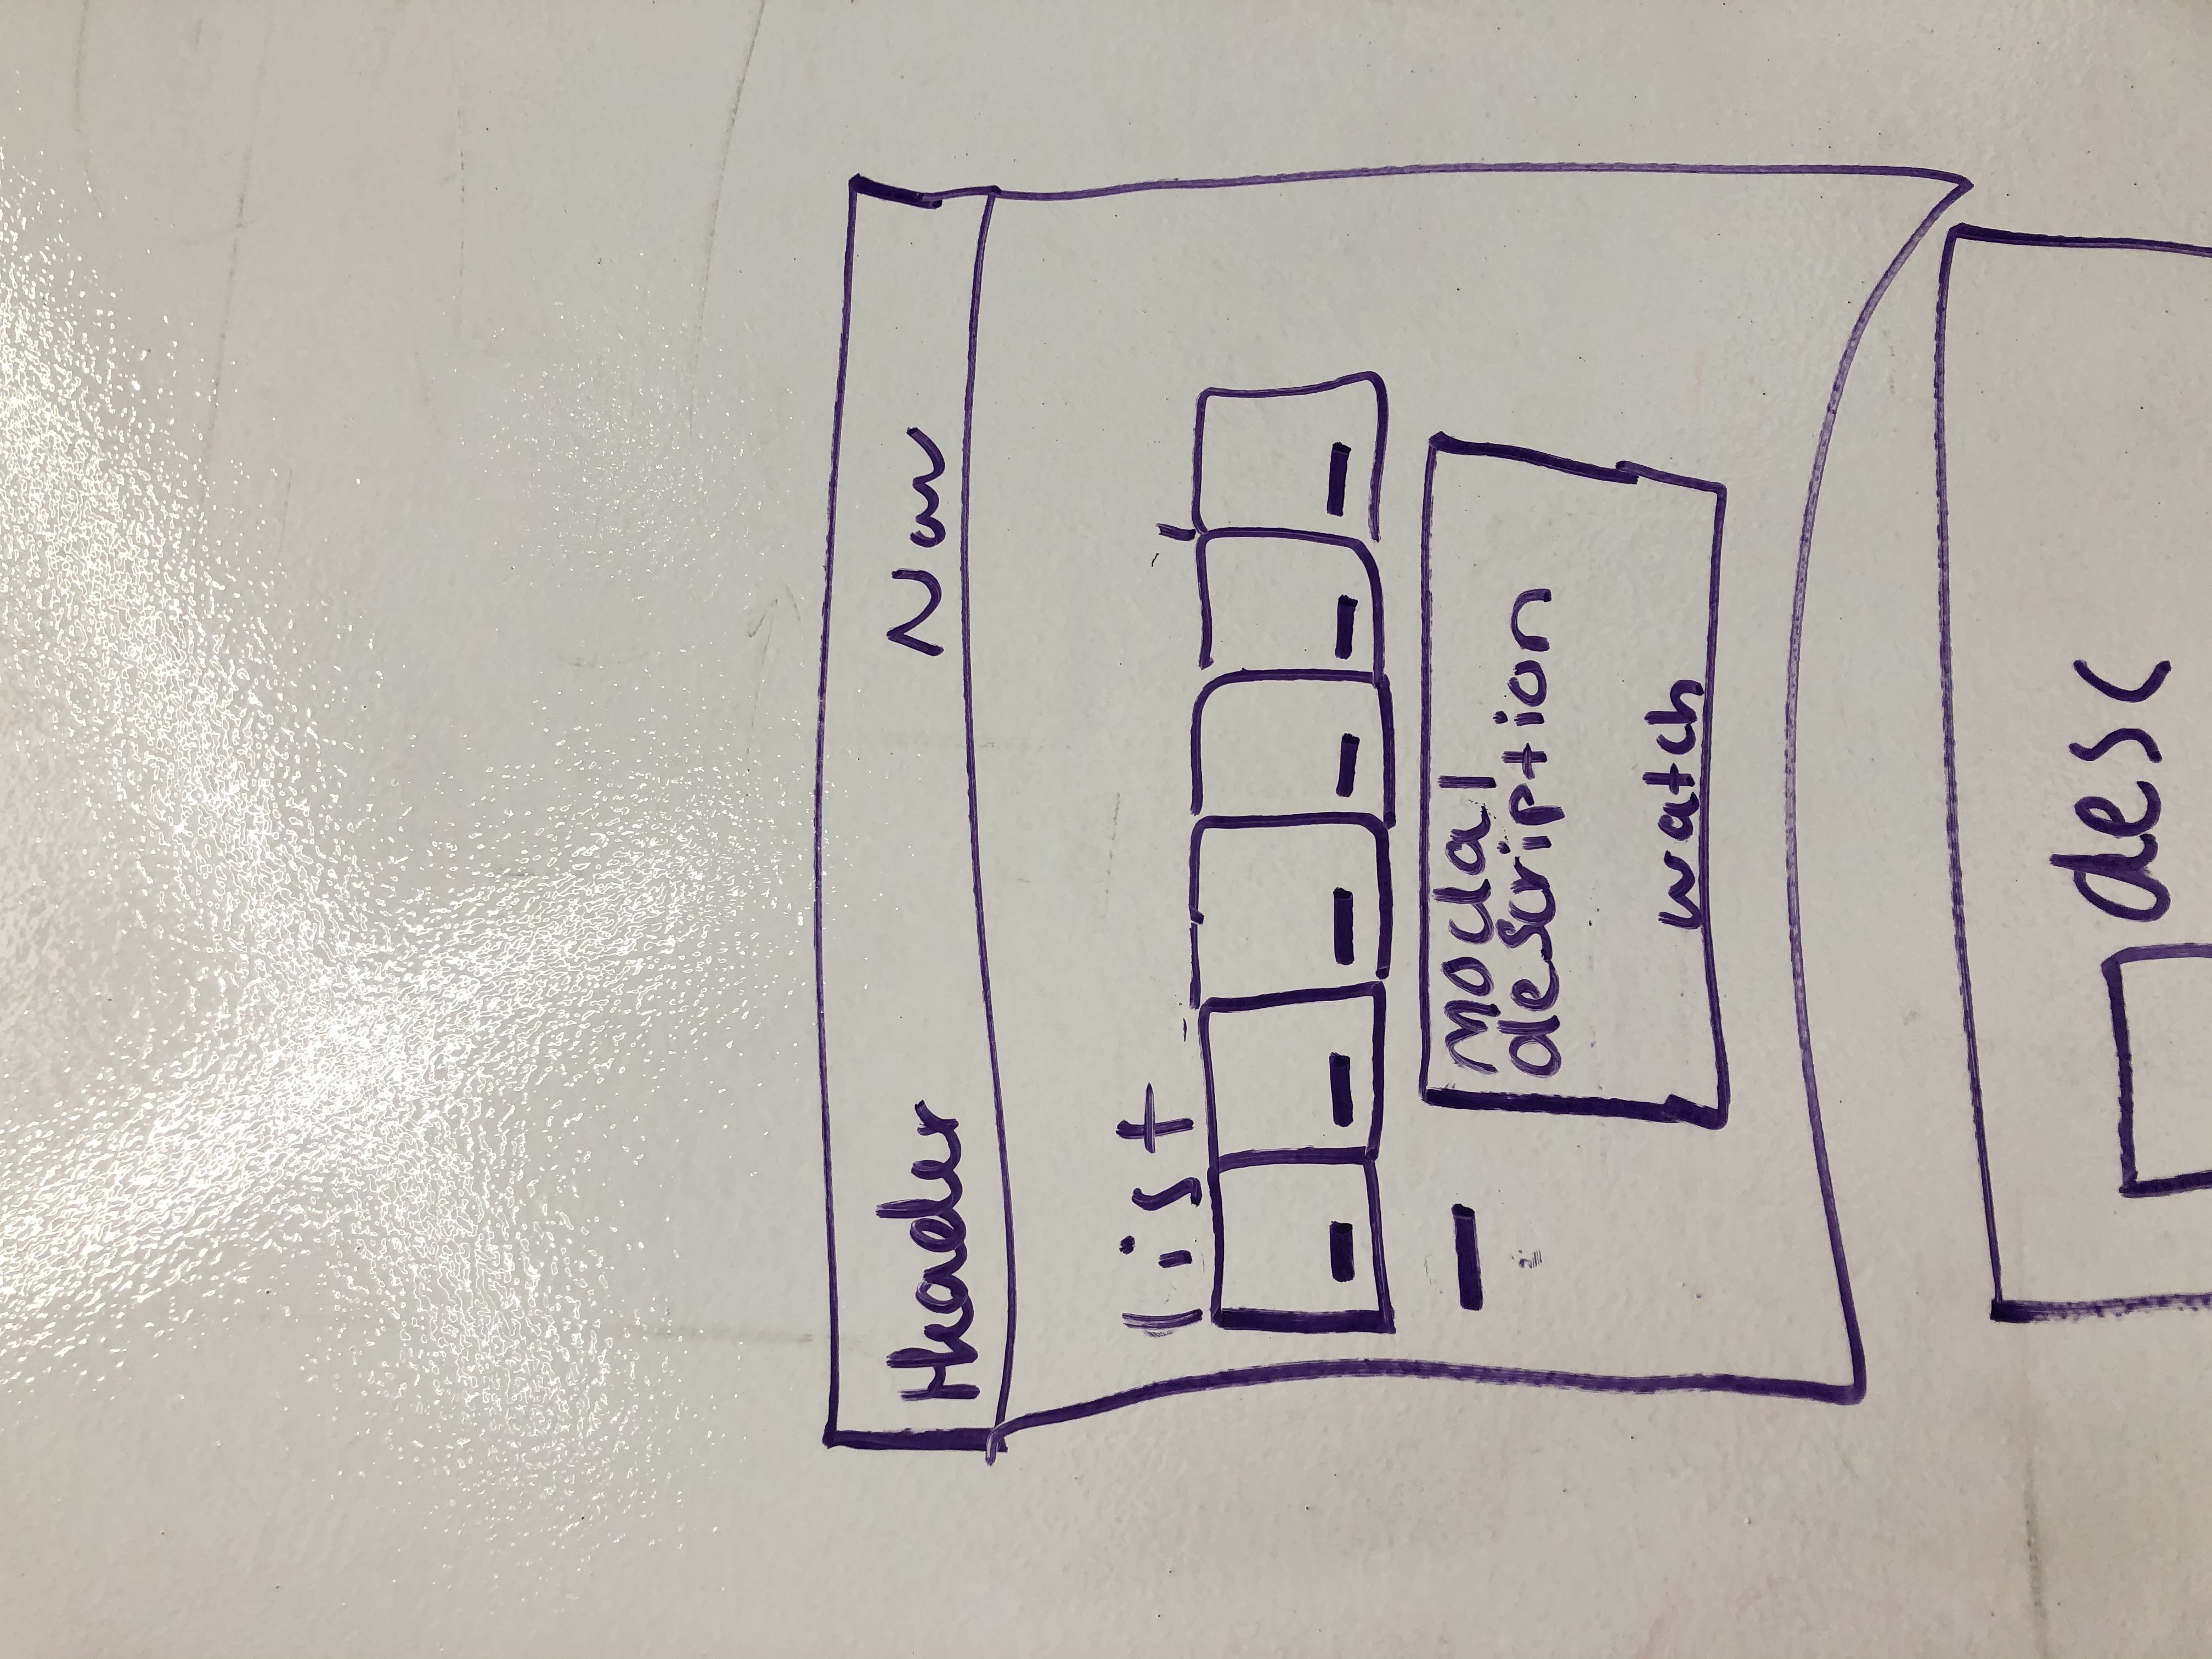 Header Nav
list
modal
description
watch
desc